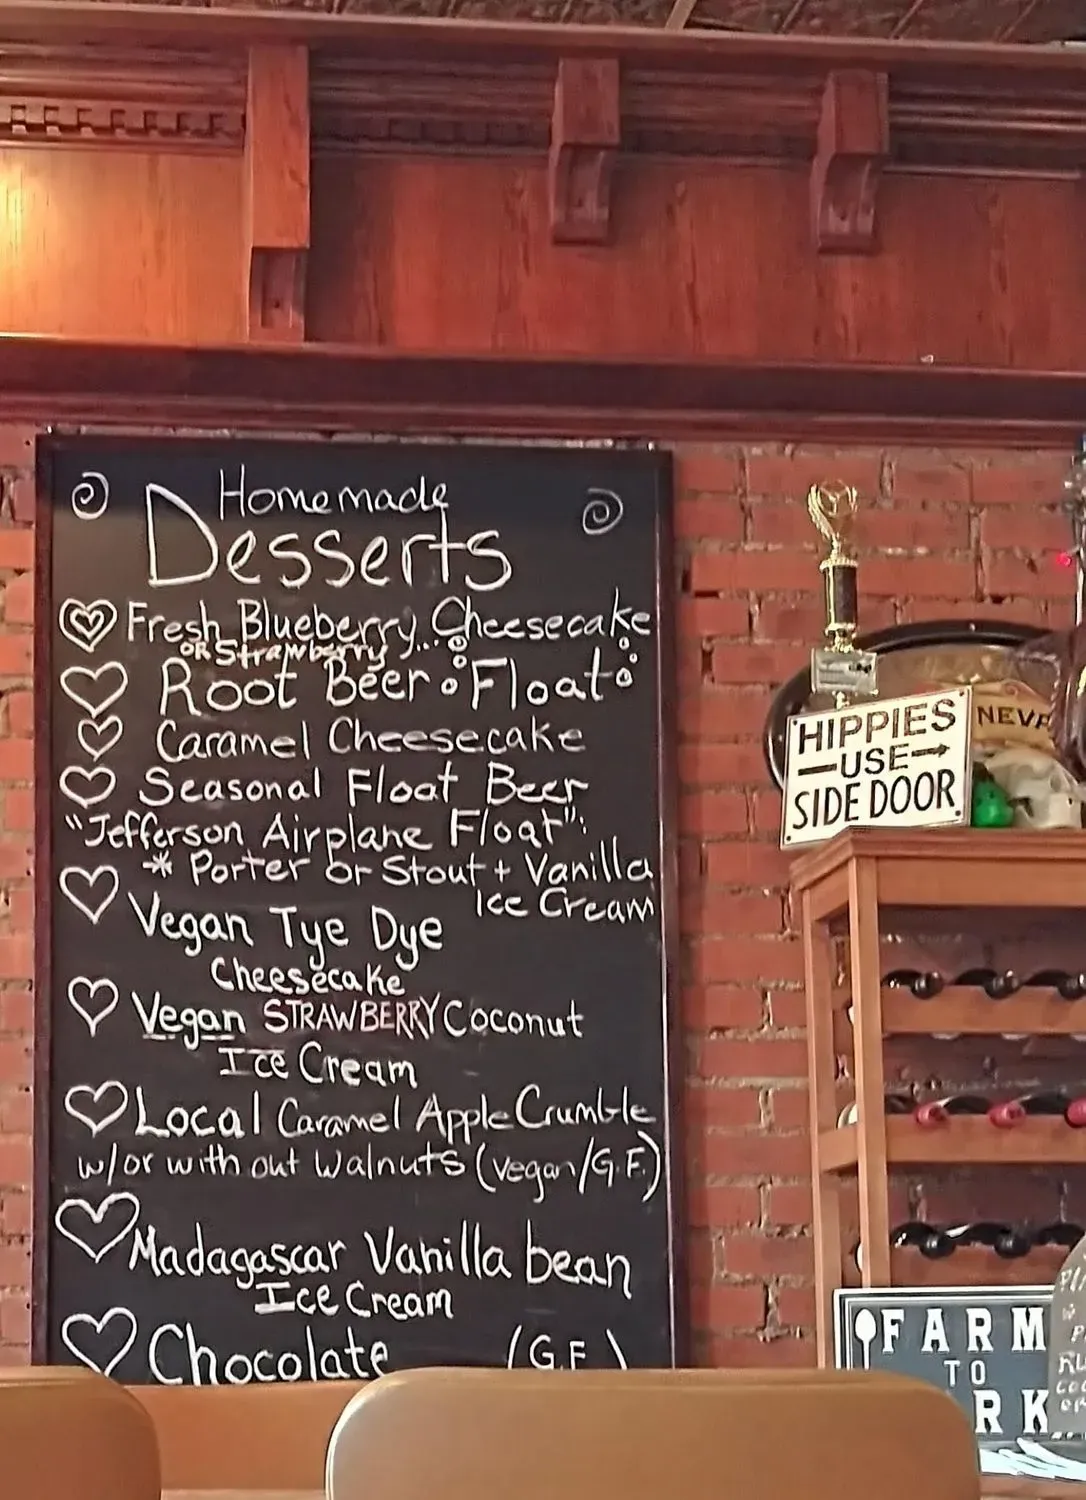 Homemade
Desserts
Fresh Blueberry Cheesecake
OR Strawberry
Root Beer Float
Caramel Cheesecake
Seasonal Float Beer
"Jefferson Airplane Float":
* Porter or Stout + Vanilla
Ice Cream
Vegan Tye Dye
Cheesecake
Vegan STRAWBERRY Coconut
Ice Cream
Local Caramel Apple Crumble
w/or with out walnuts (vegan/G.F.)
Madagascar Vanilla bean
Ice Cream
Chocolate (G.F.)
HIPPIES
USE
SIDE DOOR
FARM
TO